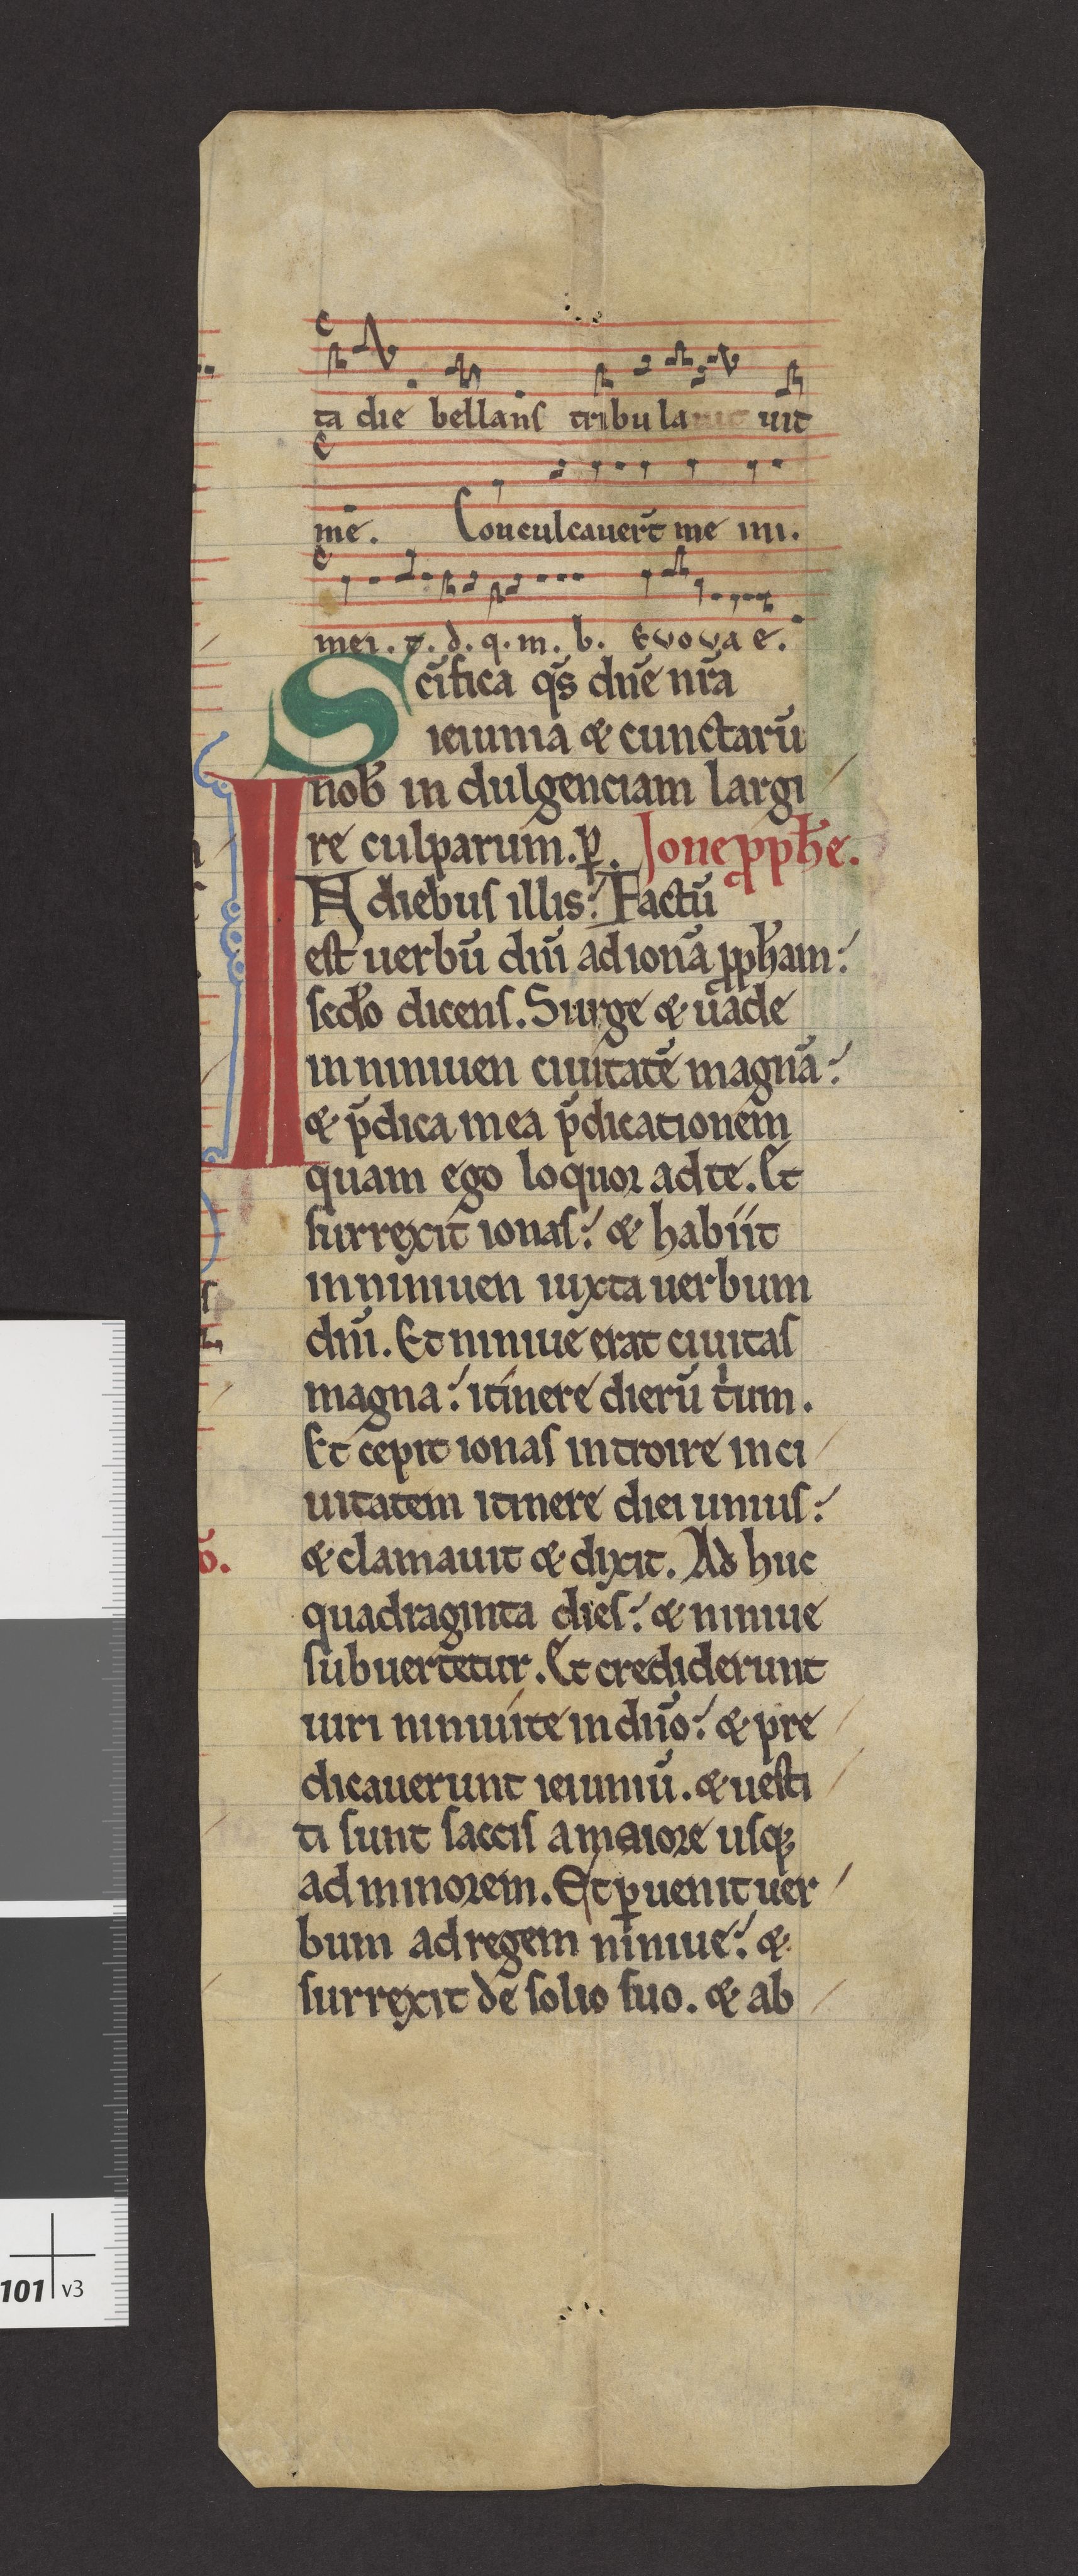 ta die bellans tribulauit uit
me. Conculcauer̄t me ini.
mei. t. d. q. m. b. Evovae.
Sc̄ifica q̄s dn̄e nr̄a
ieiunia & cunctarū
nob̄ in dulgenciam largi
re culparum. ꝑ. Jone ꝓph̄e.
IN diebus illis: Factū
est uerbū dn̄i ad ionā ꝓph̄am:
sed̄o dicens. Surge & uade
in niniuen ciuitatē magnā:
& p̄dica in ea p̄dicationem
quam ego loquor ad te. Et
surrexit ionas: & habiit
in niniuen iuxta uerbum
dn̄i. Et niniue erat ciuitas
magna: itinere dierū tⁱum.
Et cepit ionas introire in ci
uitatem itinere diei unius:
& clamauit & dixit. Ad huc
quadraginta dies: & niniue
subuertetur. Et crediderunt
uiri niniuite in dn̄o: & pre
dicauerunt ieiuniū. & uesti
ti sunt saccis a maiore usq;
ad minorem. Et ꝑuenit uer
bum ad regem niniue: &
surrexit de solio suo. & ab
101 v3